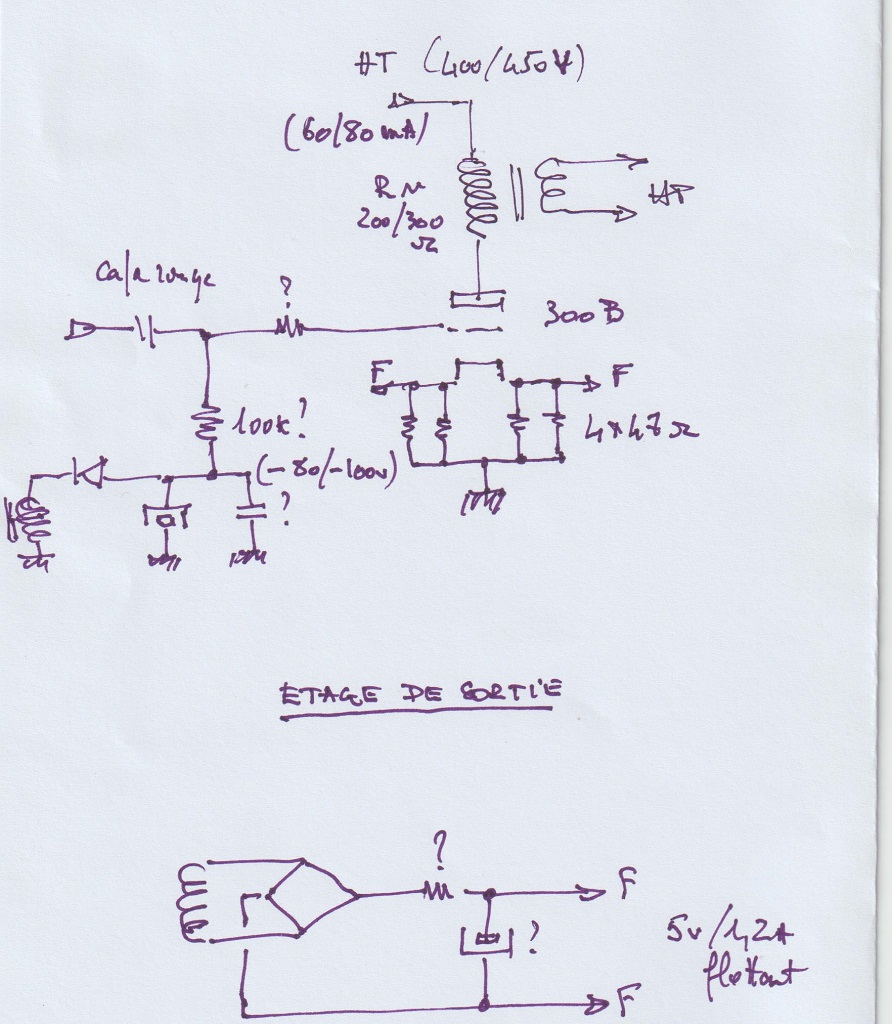 HT (400/450V)
(60/80 mA)
R ~
200/300
Ω
HP
?
300B
F
F
100k?
4×47Ω
(-80/-100v)
?
ETAGE DE SORTIE
?
F
5v/1,2A
flottant
?
F